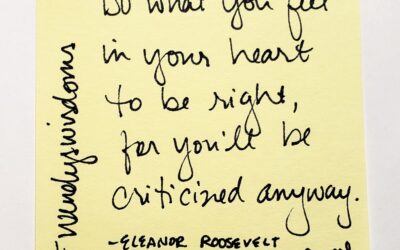 Do what you feel
in your heart
to be right,
for you'll be
criticized anyway.
-ELEANOR ROOSEVELT
#wendyswisdoms